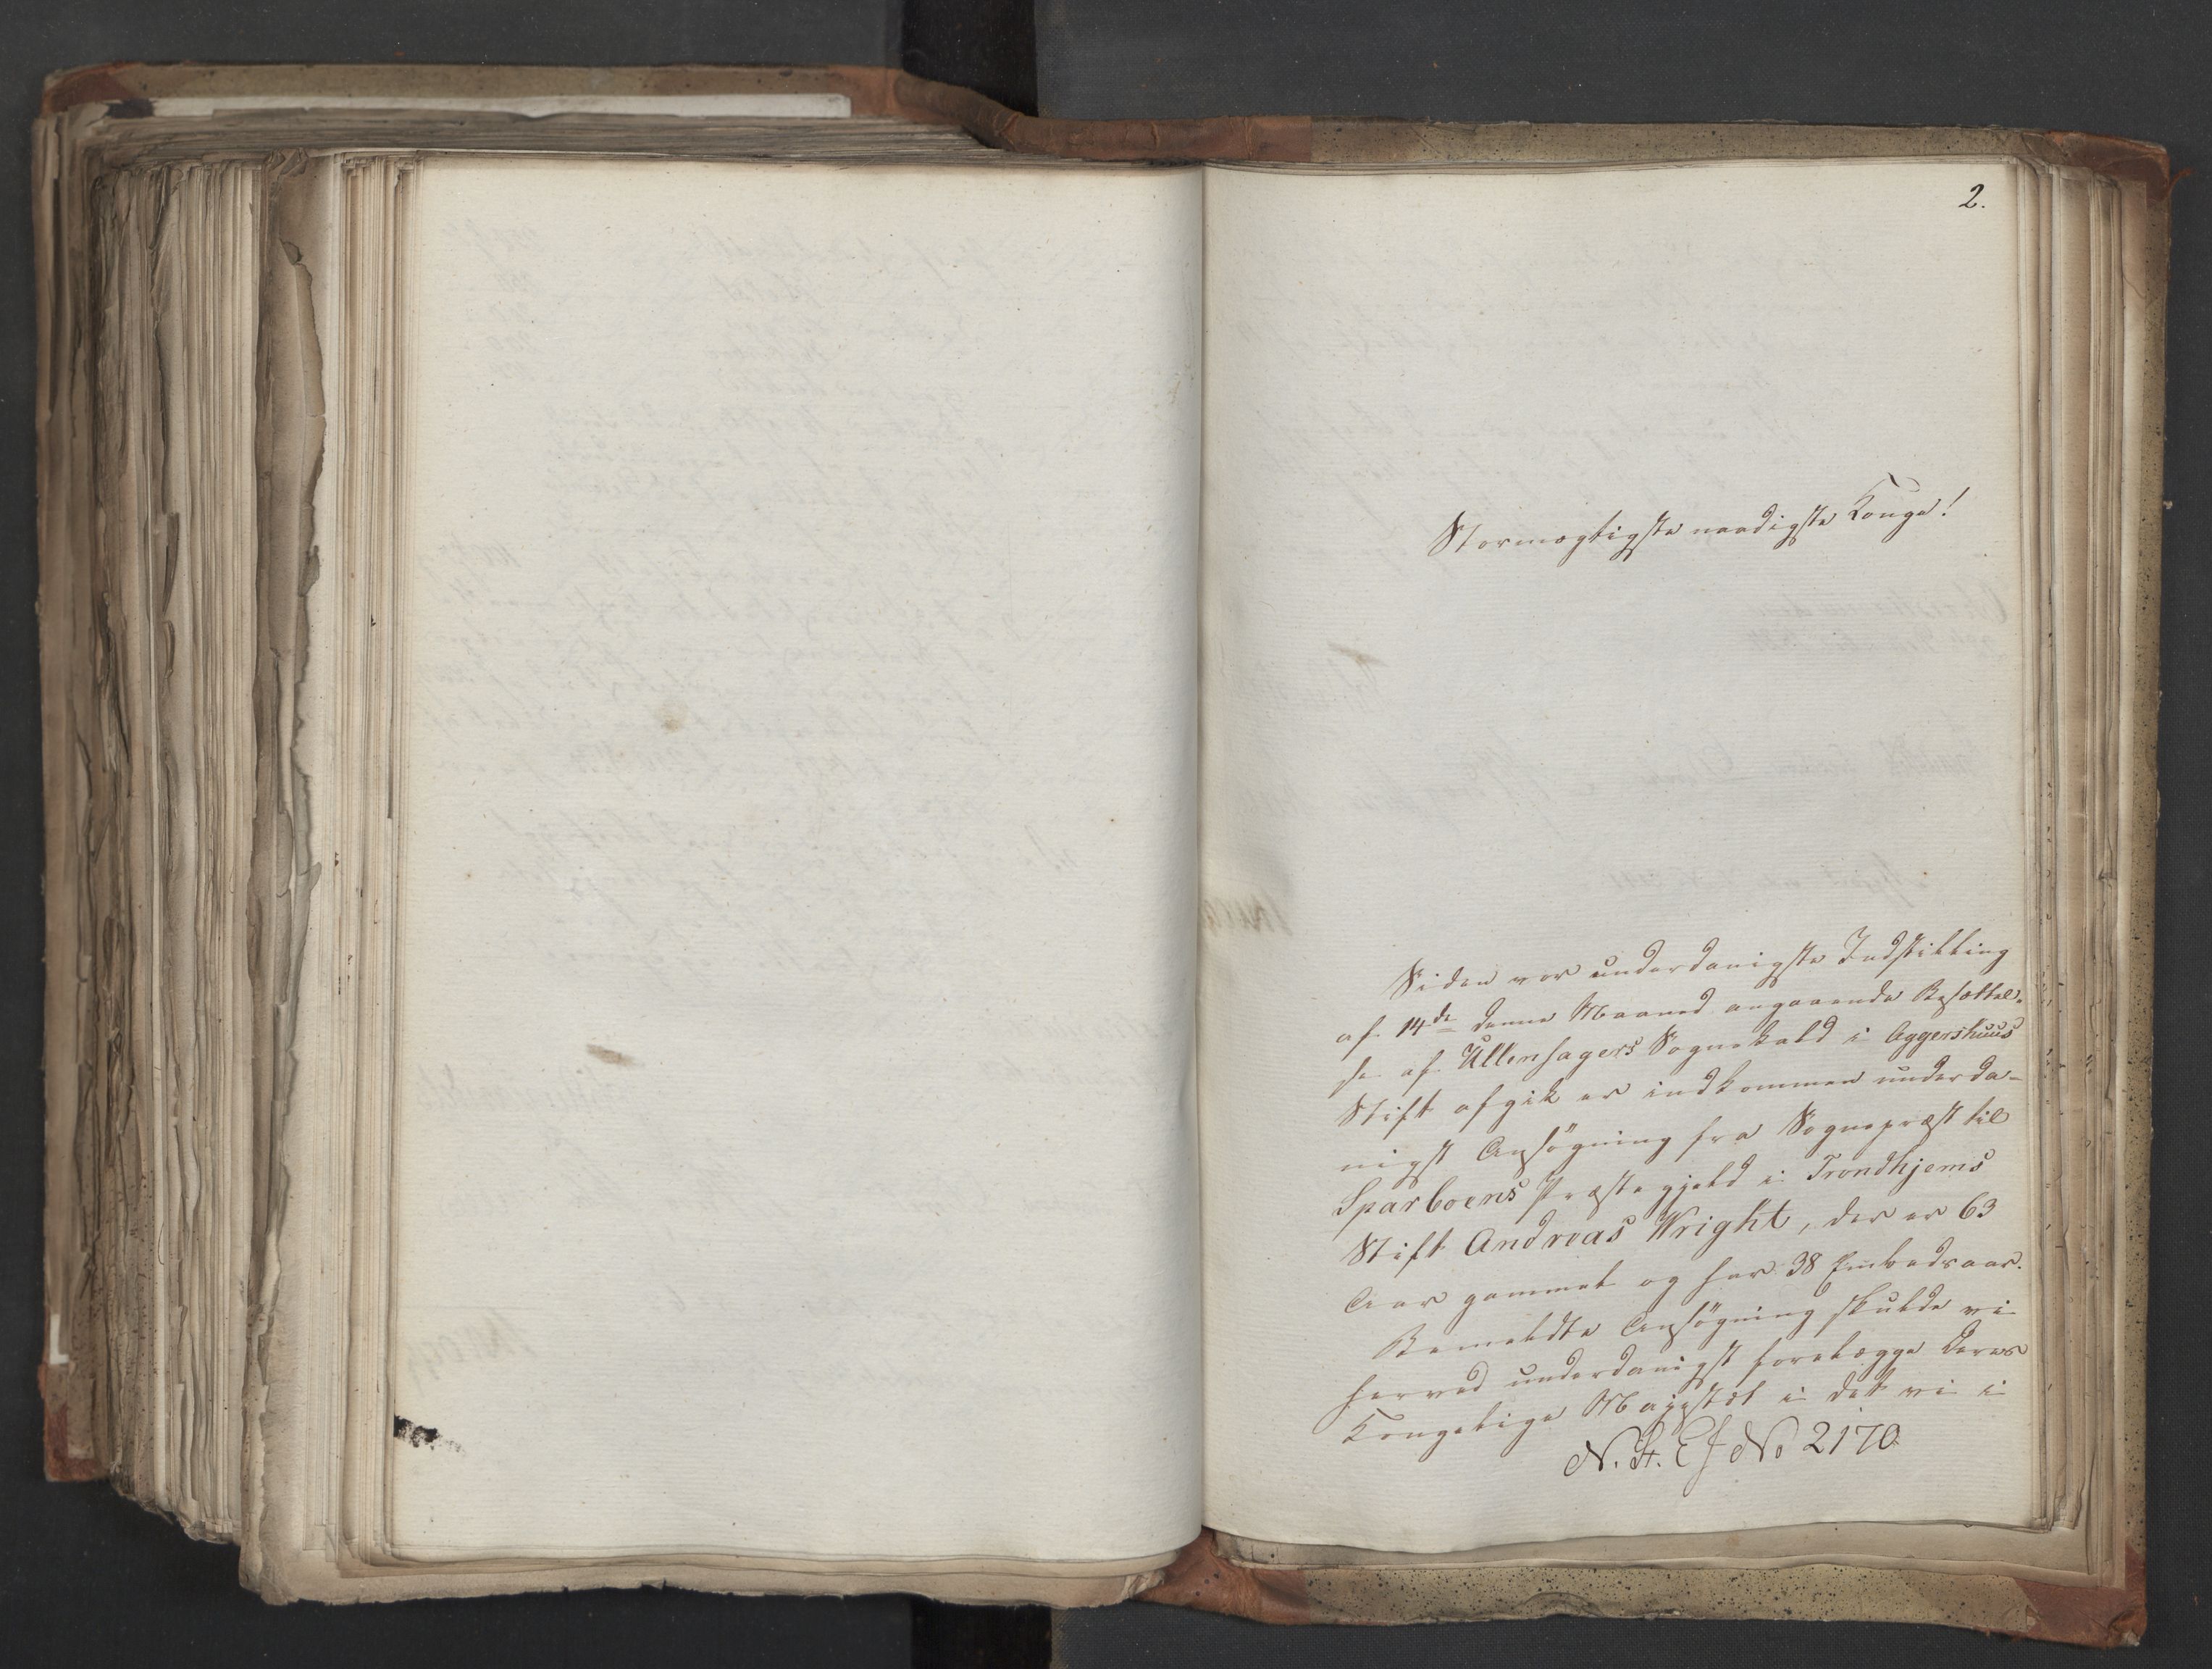 2.
Stormægtigste naadigste Konge!
Siden vor underdanigste Indstilling
af 14de denne Maaned angaaende Besættel-
se af Ullensagers Sognekald i Aggershuus
Stift afgik er indkommen underda-
nigst Ansögning fra Sognepræst til
Sparboens Præstegjeld i Trondhjems
Stift Andreas Wright, der er 63
Aar gammel og har 38 Embedsaar.
Bemeldte Ansögning skulde vi
herved underdanigst forelægge Deres
Kongelige Majestæt i det vi i
N. St. E J No 2170